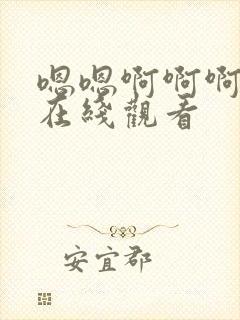 嗯嗯啊啊啊
在綫觀看
安宜郡